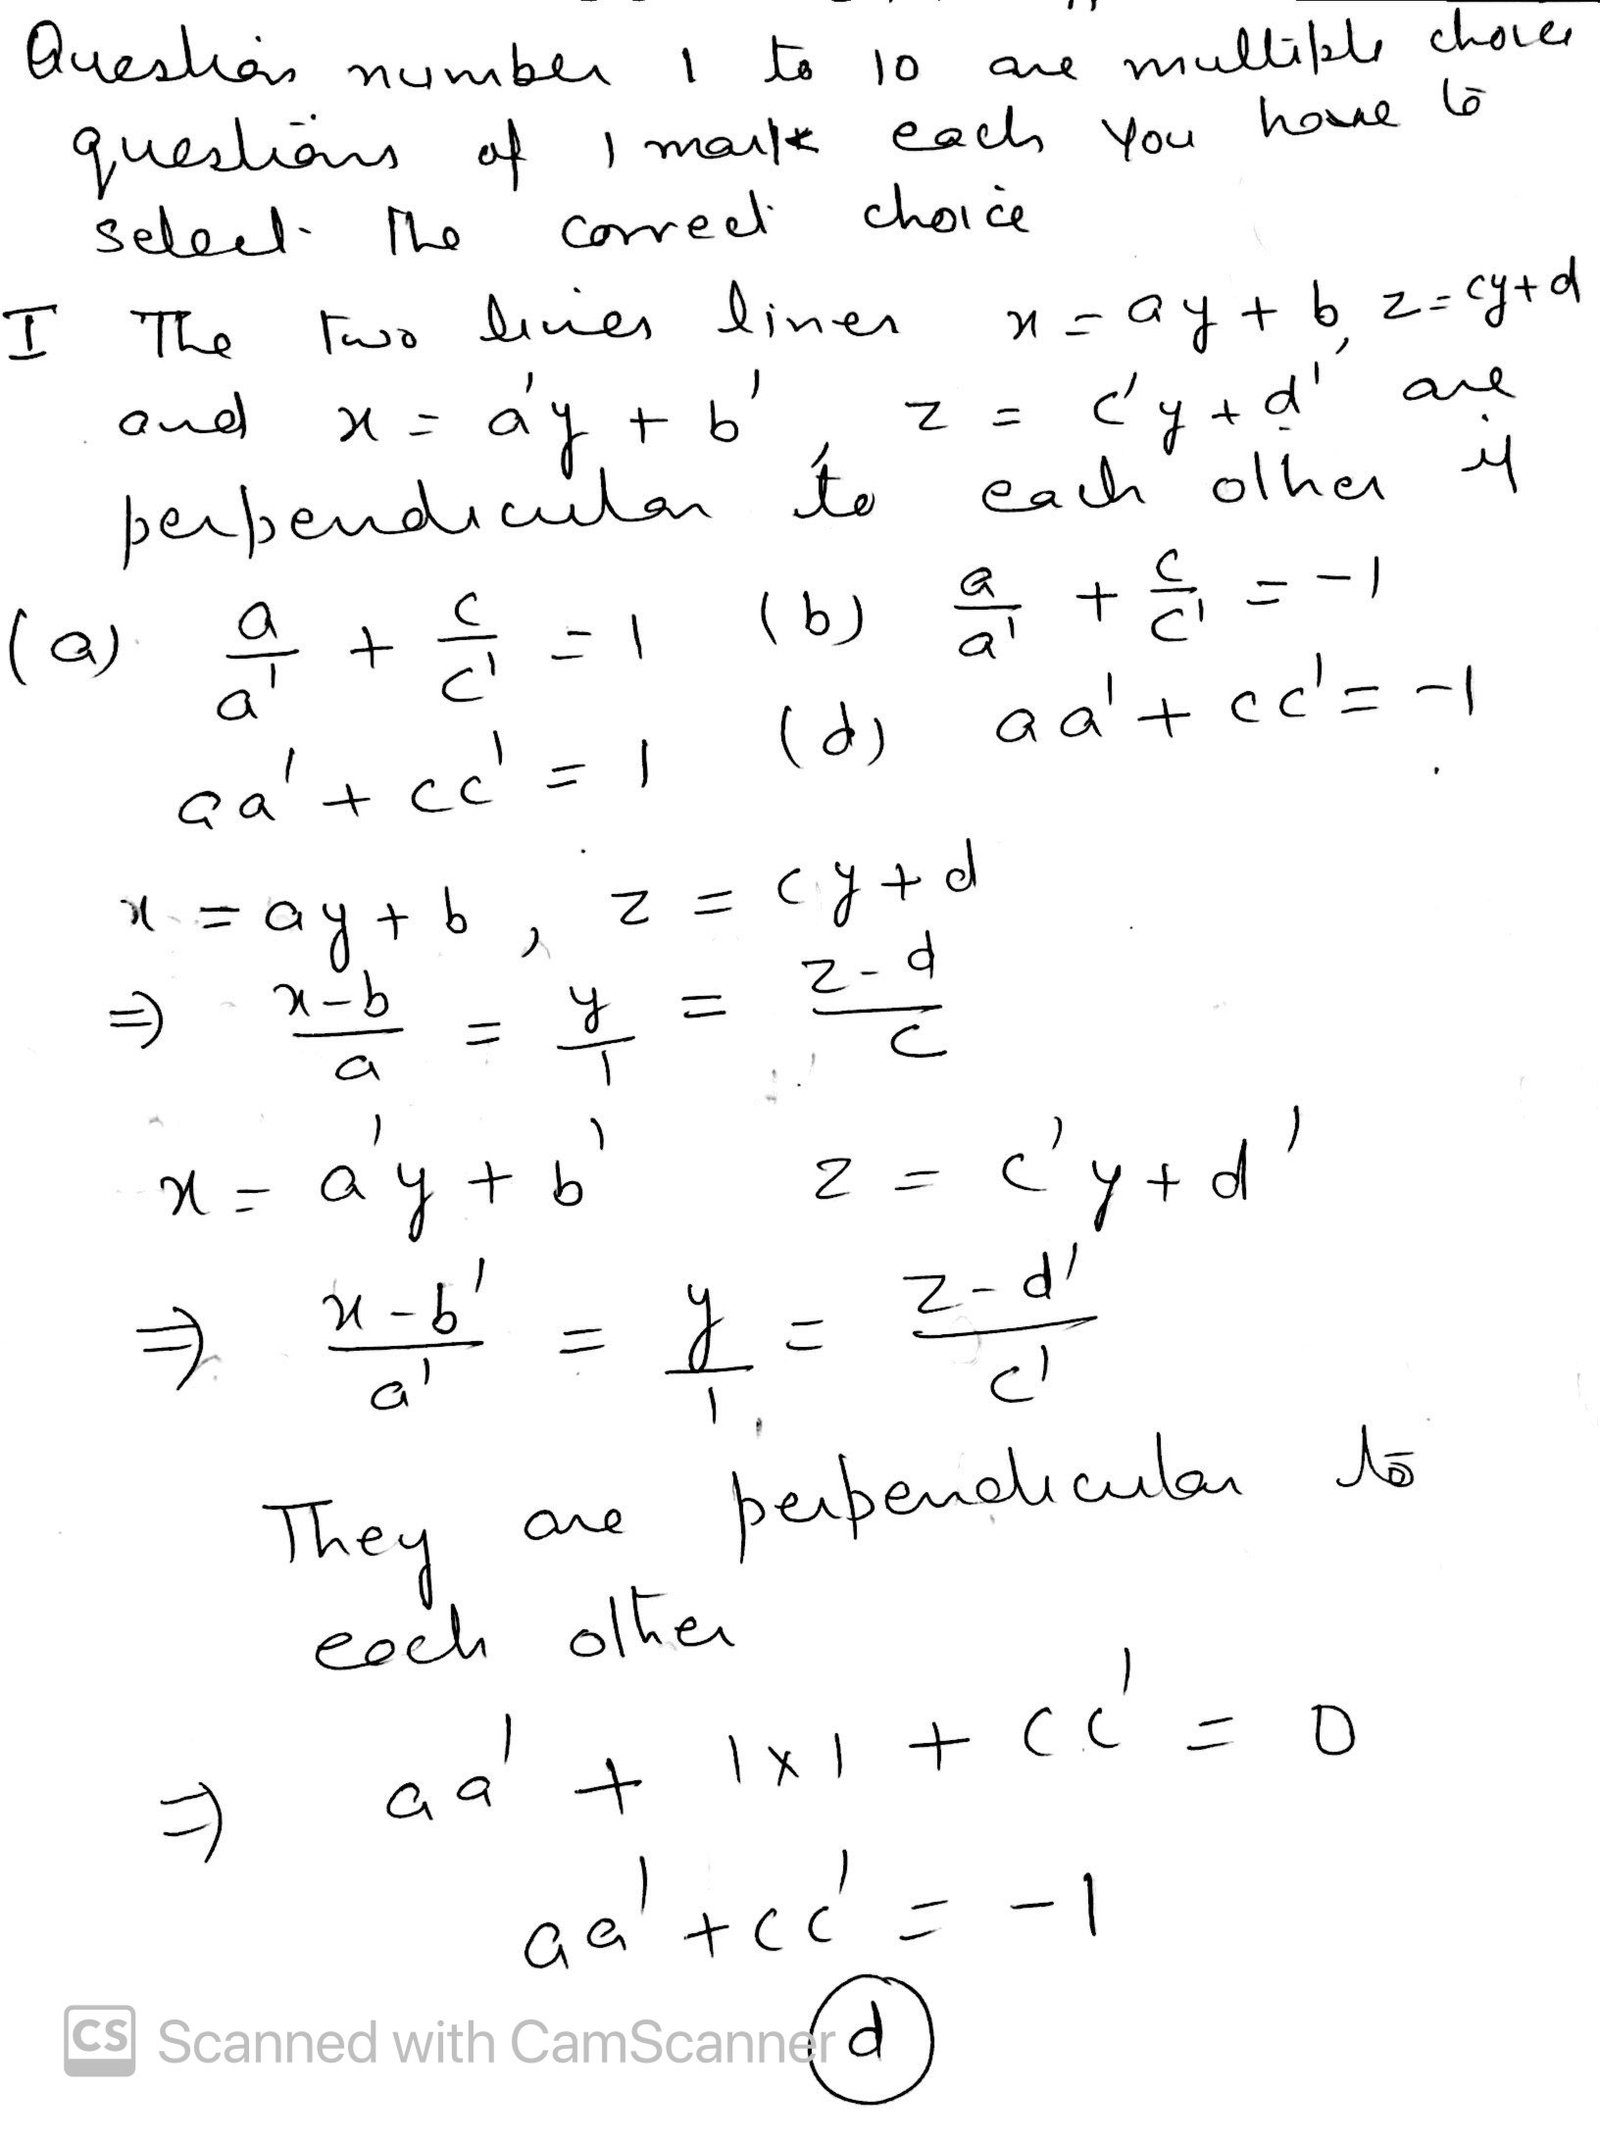 Question number 1 to 10 are multiple choice
questions of 1 mark each You have to
select the correct choice
I The two lines lines x = ay + b, z = cy + d
and x = a'y + b', z = c'y + d' are
perpendicular to each other if
(a) a/a' + c/c' = 1 (b) a/a' + c/c' = -1
aa' + cc' = 1 (d) aa' + cc' = -1
x = ay + b, z = cy + d
⇒ x-b/a = y/1 = z-d/c
x = a'y + b' z = c'y + d'
⇒ x-b'/a' = y/1 = z-d'/c'
They are perpendicular to
each other
⇒ aa' + 1x1 + cc' = 0
aa' + cc' = -1
(d)
CS Scanned with CamScanner